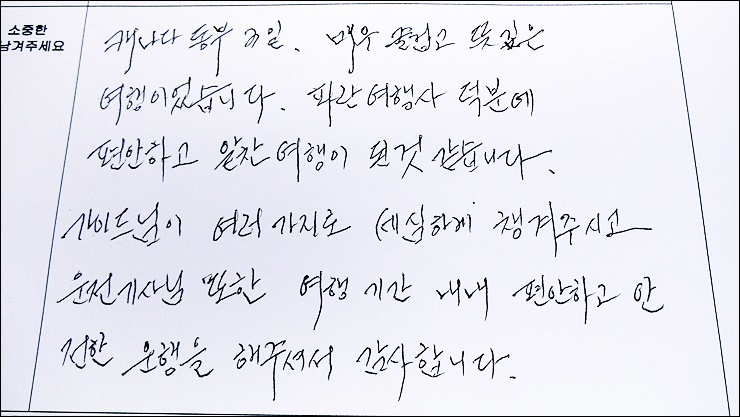 소중한
남겨주세요
캐나다 동부 3일. 매우 즐겁고 뜻깊은
여행이었습니다. 파란여행사 덕분에
편안하고 알찬 여행이 된것 같습니다.
가이드님이 여러가지로 세심하게 챙겨주시고
운전기사님 또한 여행 기간 내내 편안하고 안
전한 운행을 해주셔서 감사합니다.